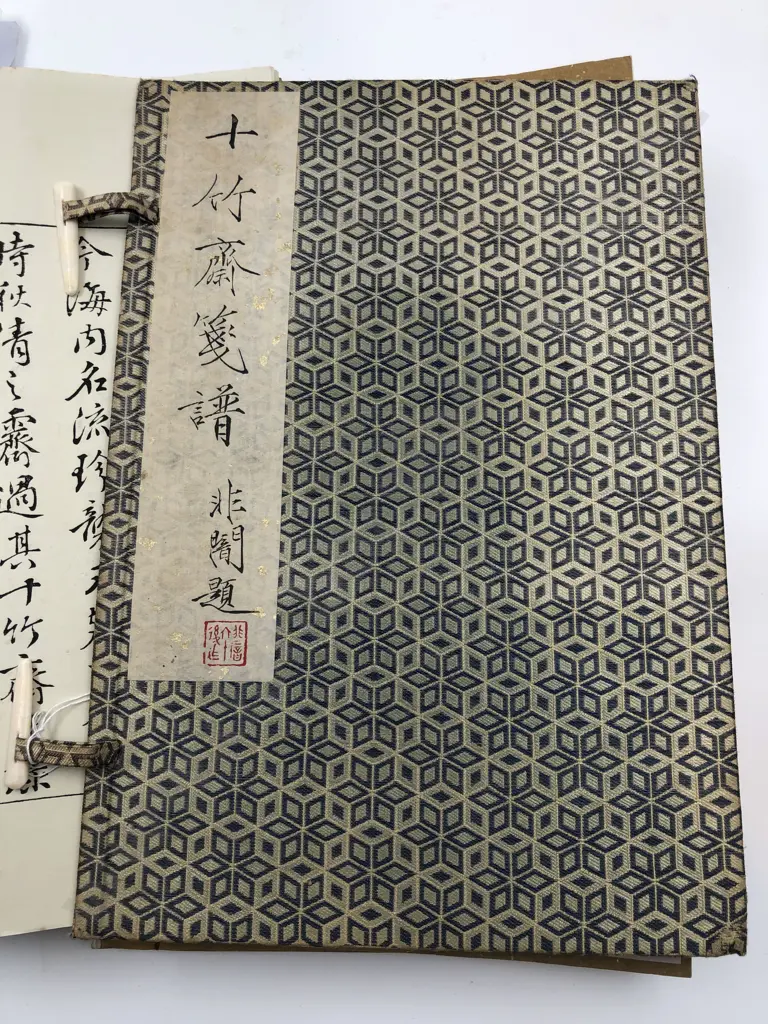 十竹齋箋譜
非闇題
今海内名流珍
時秋清之霽過其十竹齋